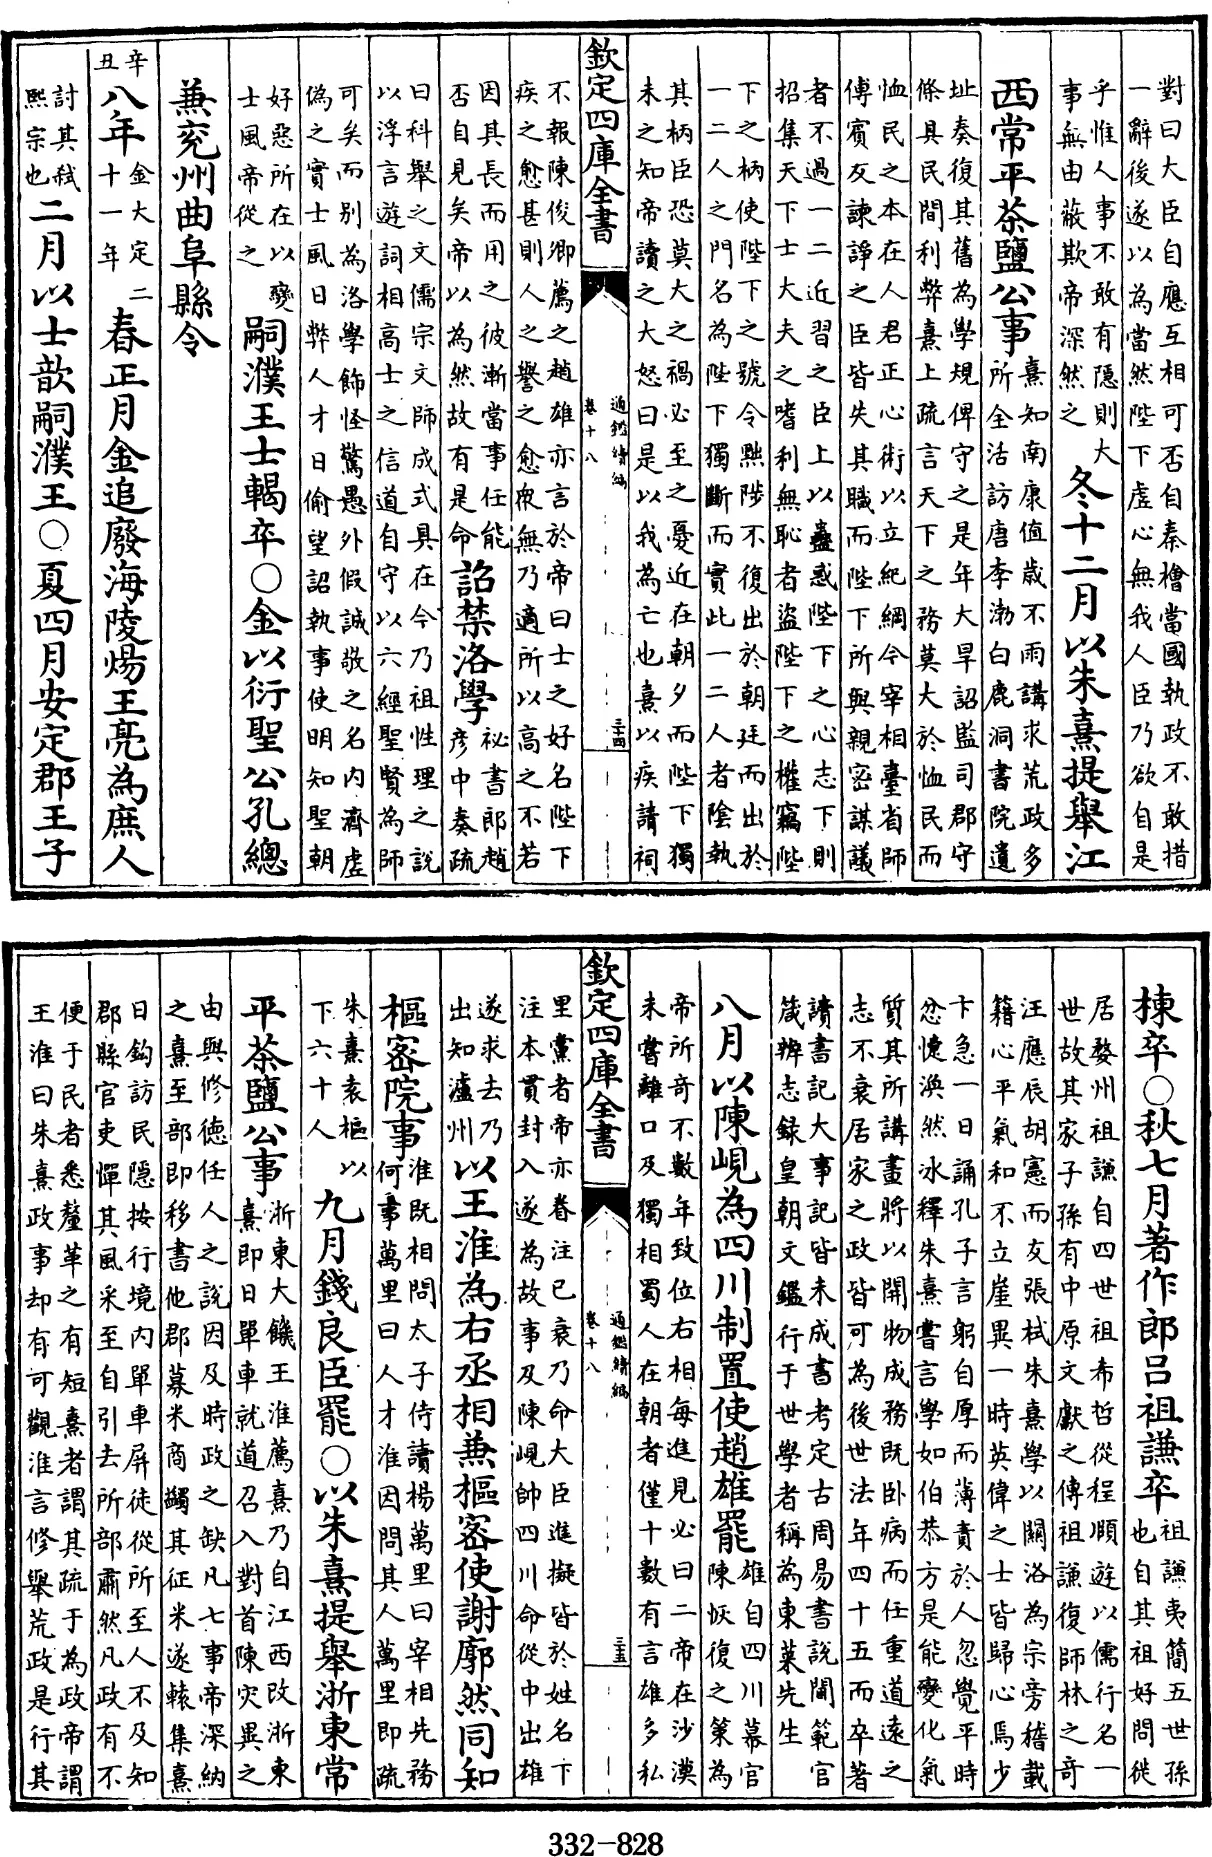 對曰大臣自應互相可否自秦檜當國執政不敢措
一辭後遂以為當然陛下虚心無我人臣乃欲自是
乎惟人事不敢有隱則大
事無由蔽欺帝深然之
冬十二月以朱熹提舉江
西常平茶鹽公事
熹知南康值歲不雨講求荒政多
所全活訪唐李渤白鹿洞書院遺
址奏復其舊為學規俾守之是年大旱詔監司郡守
條具民間利弊熹上疏言天下之務莫大於恤民而
恤民之本在人君正心術以立紀綱今宰相臺省師
傅賓友諫諍之臣皆失其職而陛下所與親密謀議
者不過一二近習之臣上以蠱惑陛下之心志下則
招集天下士大夫之嗜利無恥者盜陛下之權竊陛
下之柄使陛下之號令黜陟不復出於朝廷而出於
一二人之門名為陛下獨斷而實此一二人者陰執
其柄臣恐莫大之禍必至之憂近在朝夕而陛下獨
未之知帝讀之大怒曰是以我為亡也熹以疾請祠
欽定四庫全書
通鑑續編
卷十八
三十四
不報陳俊卿薦之趙雄亦言於帝曰士之好名陛下
疾之愈甚則人之譽之愈衆無乃適所以高之不若
因其長而用之彼漸當事任能
否自見矣帝以為然故有是命
詔禁洛學
秘書郎趙
彦中奏疏
曰科舉之文儒宗文師成式具在今乃祖性理之說
以浮言遊詞相高士之信道自守以六經聖賢為師
可矣而別為洛學飾怪驚愚外假誠敬之名内濟虚
偽之實士風日弊人才日偷望詔執事使明知聖朝
好惡所在以變
士風帝從之
嗣濮王士輵卒○金以衍聖公孔總
兼兖州曲阜縣令
辛丑
八年
金大定二
十一年
春正月金追廢海陵煬王亮為庶人
討其弒
熙宗也
二月以士歆嗣濮王○夏四月安定郡王子
棟卒○秋七月著作郎呂祖謙卒
祖謙夷簡五世孫
也自其祖好問從
居婺州祖謙自四世祖希哲從程顥遊以儒行名一
世故其家子孫有中原文獻之傳祖謙復師林之奇
汪應辰胡憲而友張栻朱熹學以關洛為宗旁稽載
籍心平氣和不立崖異一時英偉之士皆歸心焉少
卞急一日誦孔子言躬自厚而薄責於人忽覺平時
忿懥渙然冰釋朱熹嘗言學如伯恭方是能變化氣
質其所講畫將以開物成務既卧病而任重道遠之
志不衰居家之政皆可為後世法年四十五而卒著
讀書記大事記皆未成書考定古周易書說閫範官
箴辨志録皇朝文鑑行于世學者稱為東萊先生
八月以陳峴為四川制置使趙雄罷
雄自四川幕官
陳恢復之策為
帝所奇不數年致位右相每進見必曰二帝在沙漠
未嘗離口及獨相蜀人在朝者僅十數有言雄多私
欽定四庫全書
通鑑續編
卷十八
三十五
里黨者帝亦眷注已衰乃命大臣進擬皆於姓名下
注本貫封入遂為故事及陳峴帥四川命從中出雄
遂求去乃
出知瀘州
以王淮為右丞相兼樞密使謝廓然同知
樞密院事
淮既相問太子侍讀楊萬里曰宰相先務
何事萬里曰人才淮因問其人萬里即疏
朱熹袁樞以
下六十人
九月錢良臣罷○以朱熹提舉浙東常
平茶鹽公事
浙東大饑王淮薦熹乃自江西改浙東
熹即日單車就道召入對首陳灾異之
由與修德任人之說因及時政之缺凡七事帝深納
之熹至部即移書他郡募米商蠲其征米遂輳集熹
日鈎訪民隱按行境内單車屏徒從所至人不及知
郡縣官吏憚其風采至自引去所部肅然凡政有不
便于民者悉釐革之有短熹者謂其疏于為政帝謂
王淮曰朱熹政事却有可觀淮言修舉荒政是行其
332-828